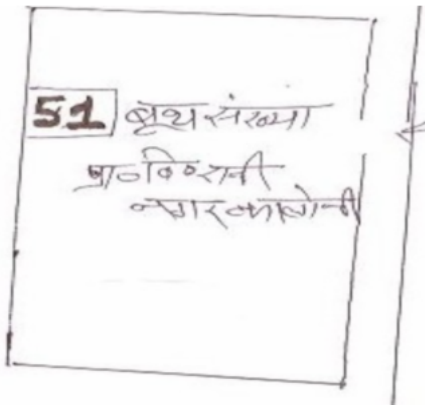 51 बूथ संख्या
प्रा०वि० रानी
नगर कालोनी